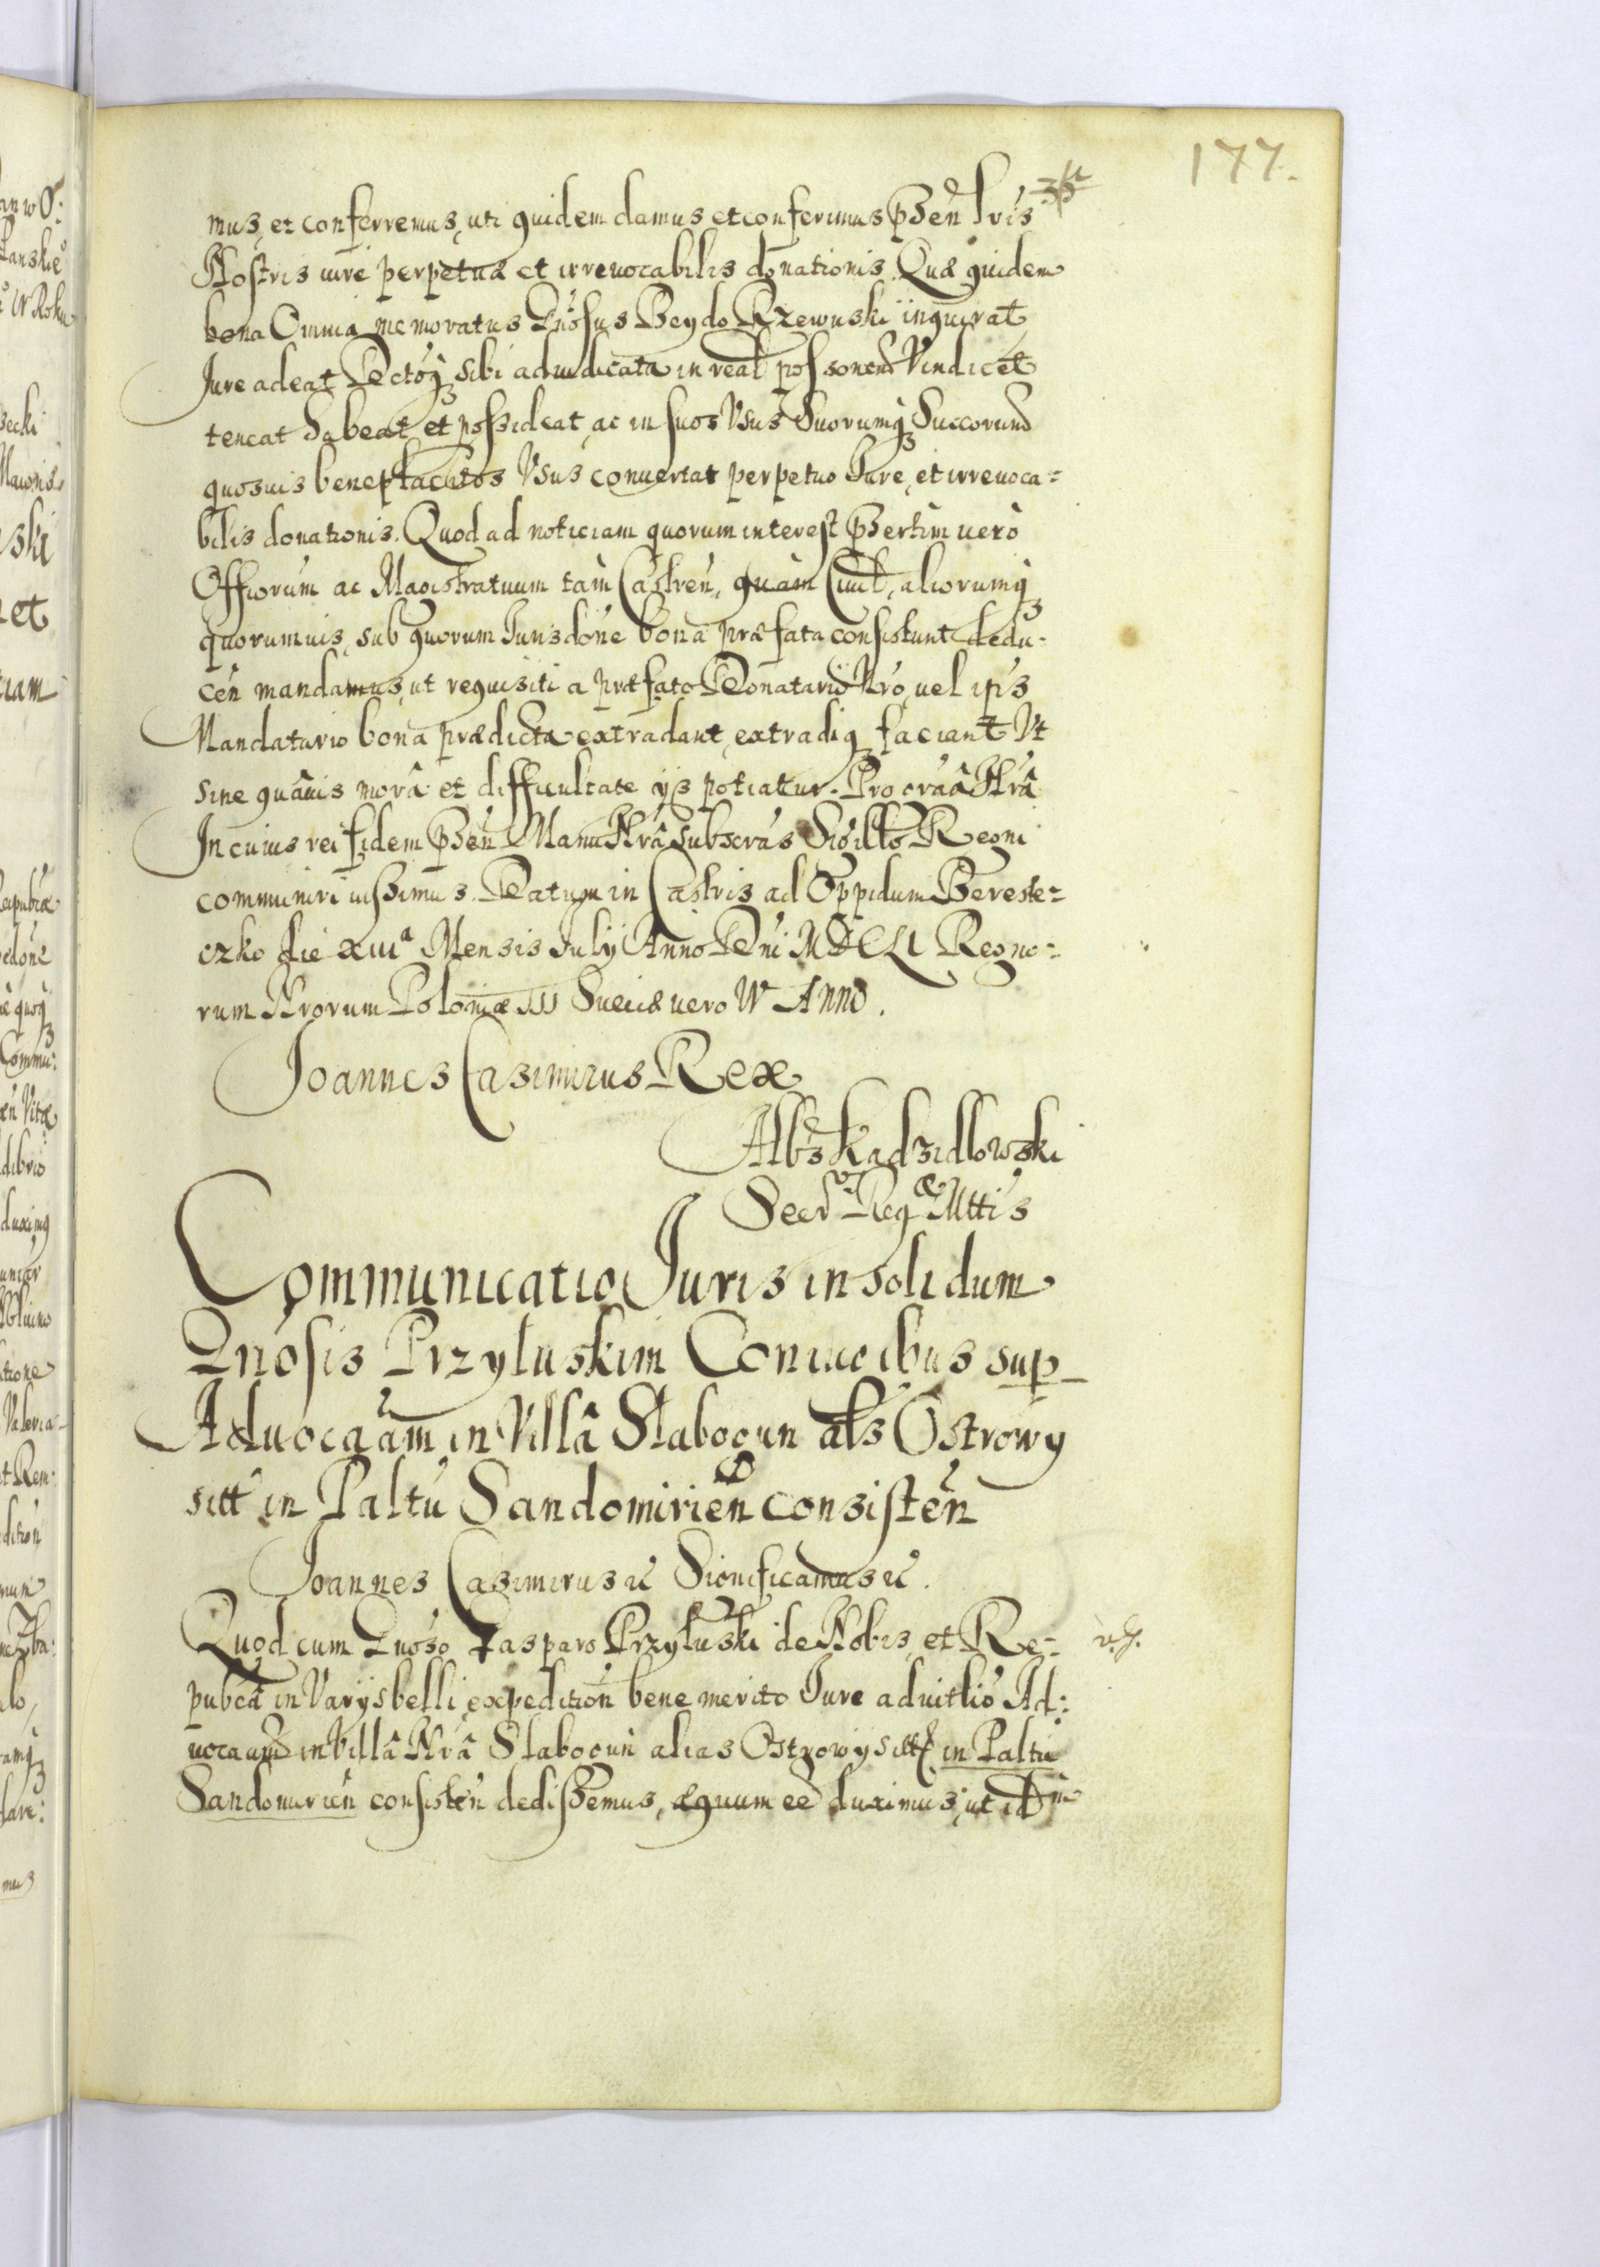 177.
mus, et conferremus, uti quidem damus et conferimus pßen Lris
Nostris iure perpetuæ et irreuocabilis donationis. Quæ quidem
bona Omnia memoratus Gnosus Beydo Rzewuski inquirat
Jure adeat Dectoq sibi adiudicata in realˢ possonem Vindicet
teneat habeat et possideat, ac in suos Vsus Suorumq Succorum
quosuis beneplacitos Vsus conuertat perpetuo Jure, et irreuoca=
bilis donationis. Quod ad noticiam quorum interest pßertim uerò
Officiorum ac Magistratuum tàm Castren, quàm Ciuil, aliorumq
quorumuis, sub quorum Jurisdone bona præfata consistunt dedu-
cen mandamus, ut requisiti a præfato Donatario Nro, uel ipˢ
Mandatario bona prædicta extradant, extradiq faciant Vt
sine quâuis morâ et difficultate ijs potiatur. Pro graâ Nrâ
In cuius rei fidem pßen Manu Nrâ subscras Sigillo Regni
communiri iussimus. Datum in Castris ad Oppidum Bereste=
czko die XIIIª Mensis Julij Anno Dni MDCLI Regno=
rum Nrorum Poloniæ III Sueciæ uero IV Anno.
Joannes Casimirus Rex
Albs Kadzidlowski
Secr Reg Mttis
Communicatio Juris in solidum
Gnosis Przyluskim Coniugibus sup
Aduocaam in Villâ Slabogun als Ostrowy
sitt in Paltu Sandomirien consisten
Joannes Casimirus &c Significamus &c.
Quod cum Gnoso Gasparo Przyłuski de Nobis, et Re=
pubcâ in Varijs belli expedition bene merito Jure aduitlio Ad:
uocaam in Villâ Nrâ Slabogun alias Ostrowy sitt in Paltu
Sandomirien consisten dedissemus, æquum ee duximus, ut id